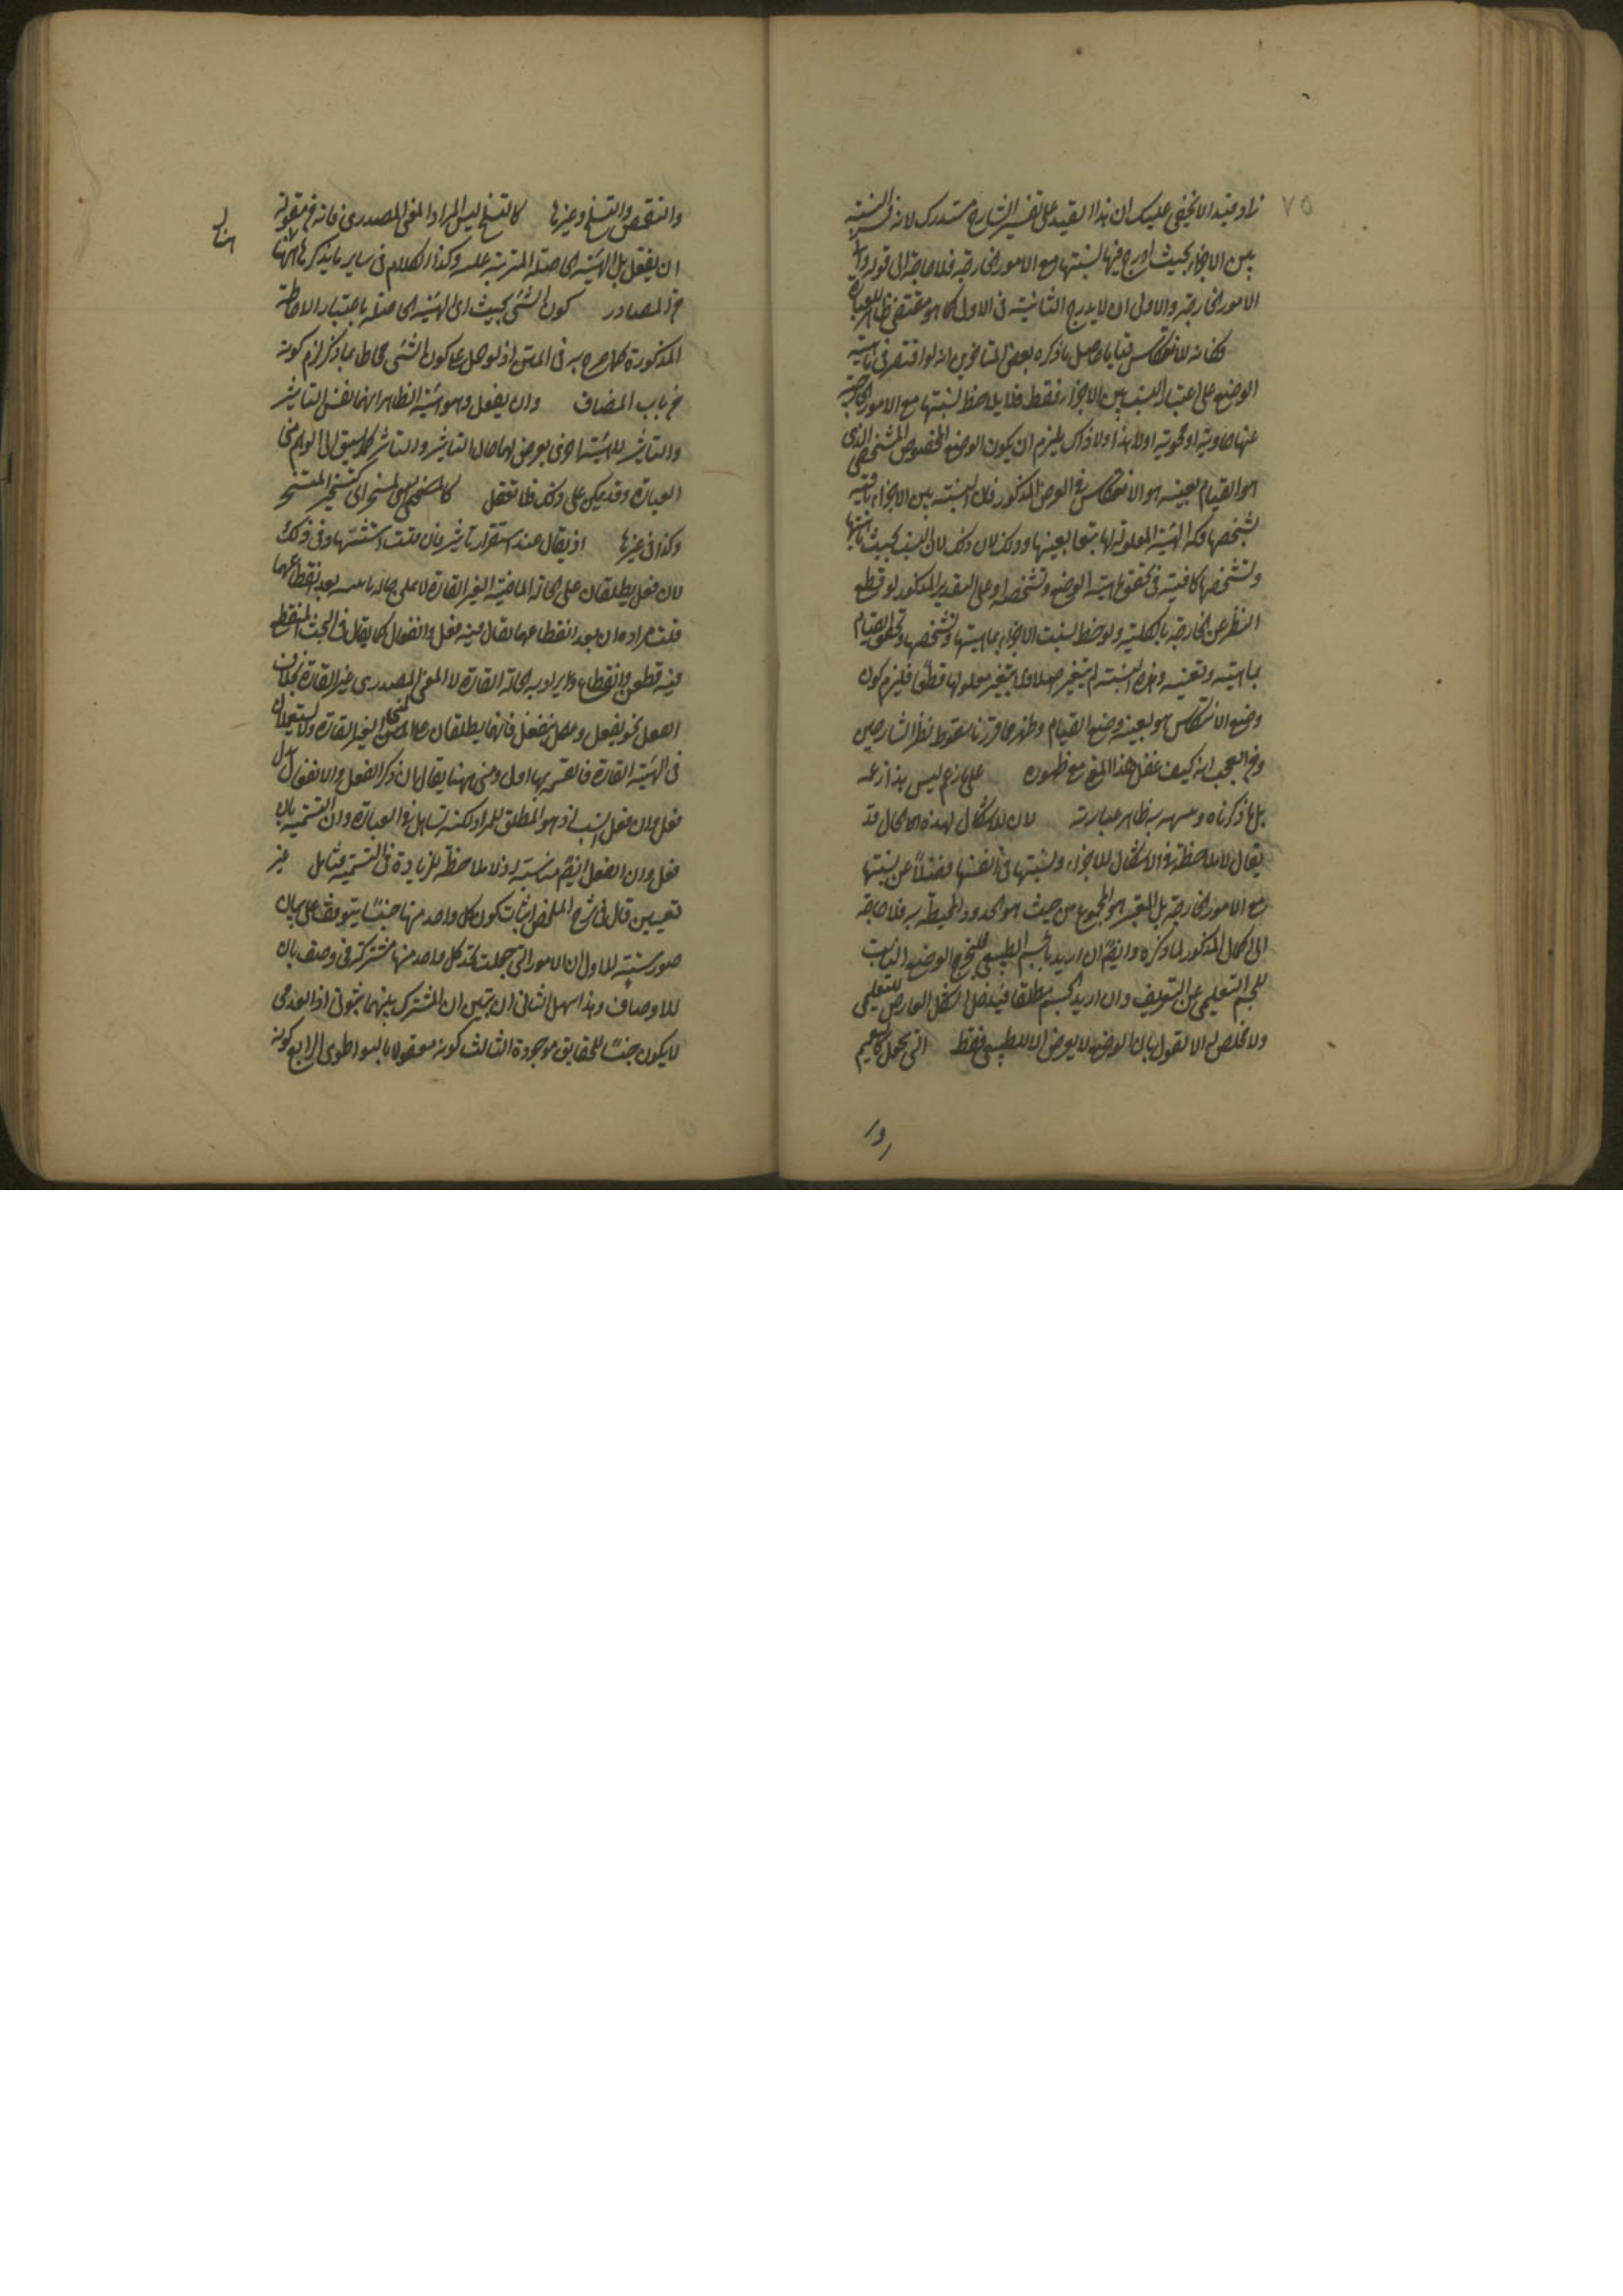 ٧٥
زاد قيد الا يخفى عليك ان هذا القيد على تفسير الشارح مستدرك لانه فسر النسبة
بين الاجزاء بحيث ادرج فيها نسبتها مع الامور الخارجة فلا حاجة الى قوله والى
الامور الخارجة والاولى ان لا يدرج الثانية فى الاول كما هو مقتضى ظاهر العبارة
فكانه للانتكاس قياما حصل ما ذكره بعض المتاخرين انه لو اقتصر فى ماهية
الوضع على اعتبار النسب بين الاجزاء فقط فلا يلاحظ نسبتها مع الامور الخارجية
عنها حاوية او محوية اولا هذا ولا ذاك يلزم ان يكون الوضع المخصوص المشخص الذى
هو القيام بعينه هو الانتكاس فى الوضع المذكور فان النسبة بين الاجزاء باقية
بشخصها فكذا الهيئة المعلولة لها بتعا بعينها وذلك لان تلك النسب بحيث ماهيتها
وتشخصها كافية فى تحقق ماهية الوضع وتشخصه وعلى التقدير المذكور لو قطع
النظر عن الخارجة بالكلية ولوحظ نسبت الاجزاء بماهيتها وتشخصها وتحقق القيام
بماهيته وتعينه وهذه النسبة لم يتغير اصلا ولم يتغير معلولها قطعا فيلزم كون
وضع الانتكاس هو بعينه وضع القيام وظهر مما قررنا سقوط نظر الشارحين
ومن العجب انه كيف غفل هذا المنع مع ظهوره على ما زعم ليس هذا زعمه
بل ما ذكرناه وشهد به ظاهر عبارته لان للاشكال لهذه الاحال قد
يقال لا ملاحظة فى الاشكال للاجزاء ونسبتها فى انفسها فضلا عن نسبتها
مع الامور الخارجة بل المعتبر هو المجموع من حيث هو الحدود المحيطة به فلا حاجة
الى اكمال المذكور لما ذكره وايضا ان اريد بالجسم الطبيعى فيخرج الوضع الثابت
للجسم التعليمى عن التعريف وان اريد الجسم مطلقا فيدخل الشكل العارض للتعليمى
ولا مخلص له الا القول بان الوضع لا يعرض الا للطبيعى فقط التى تحمل كالتعميم
والتقمص والتسلح وغيرها كالتسلح ليس المراد المعنى المصدرى فانه من مقولة
ان يفعل بل الهيئة الحاصلة المترتبة عليه وكذا الكلام فى ساير ما يذكر هاهنا
من المصادر كون الشئ بحيث اى الهيئة الحاصلة باعتبار الاحاطة
المذكورة كما صرح به فى المتن اذ لو حمل على كون الشئ محاطا بما ذكر لزم كونه
من باب المضاف وان يفعل وهو هيئة الظاهر انهما نفس التاثير
والتاثر للهيئة اخرى يعرض لهما حال التاثير والتاثر كما يسبق الى الوهم من
العبارة وقد يمكن على ذلك فلا تغفل كالمسخن المسخن اى كتسخن المتسخن
وكذا فى غيرها اذ يقال عند استقرار تاثير فان قلت استثنتها وفى ذلك
لان فعل يطلقان على الحالة الماضية الغير القارة لا على حاله بعد انقطاعهما
قلت مراده ان بعد انقطاعهما يقال فيه فعل وانفعال كما يقال فى البحث المنقطع
فيه قطع وانقطاع ويراد به الحالة القارة لا المعنى المصدرى غير القارة بخلاف
الفعل نحو يفعل وينفعل فانهما يطلقان على المعنى الغير القارة ولا يستعملان
فى الهيئة القارة فالتسمية بها اولى ومن هاهنا يقال بان ذكر الفعل والانفعال
فعل وان فعل انسب اذ هو المطلق للمراد لكنه تساهل فى العبارة وان التسمية بان
فعل وان انفعل ايضا مناسبة اذ لا ملاحظة للزيادة فى التسمية فتامل غير
تعيين قال فى شرح الملخص اثبات كون كل واحد منها جنسا يتوقف على بيان
صور ستة الاول ان الامور التى جعلت تحت كل واحد منها مشتركة فى وصف بان
للاوصاف وهذا سهل الثانى ان يتبين ان المشترك بينهما ثبوتى اذ العدمى
لا يكون جنسا للحقايق موجودة الثالث كونه مقولا بالتواطوى الرابع كونه